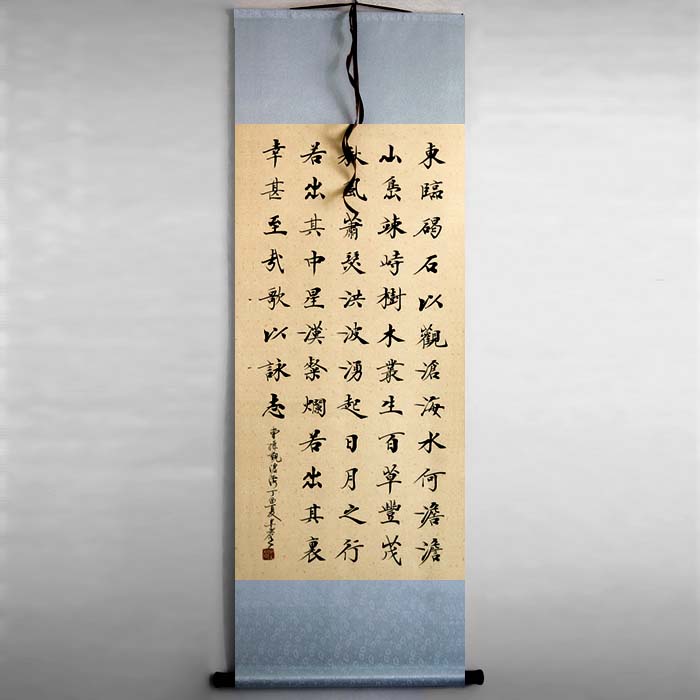 東臨碣石以觀滄海水何澹澹
山島竦峙樹木叢生百草豐茂
秋風蕭瑟洪波湧起日月之行
若出其中星漢粲爛若出其裏
幸甚至哉歌以詠志
曹操觀滄海丁酉夏